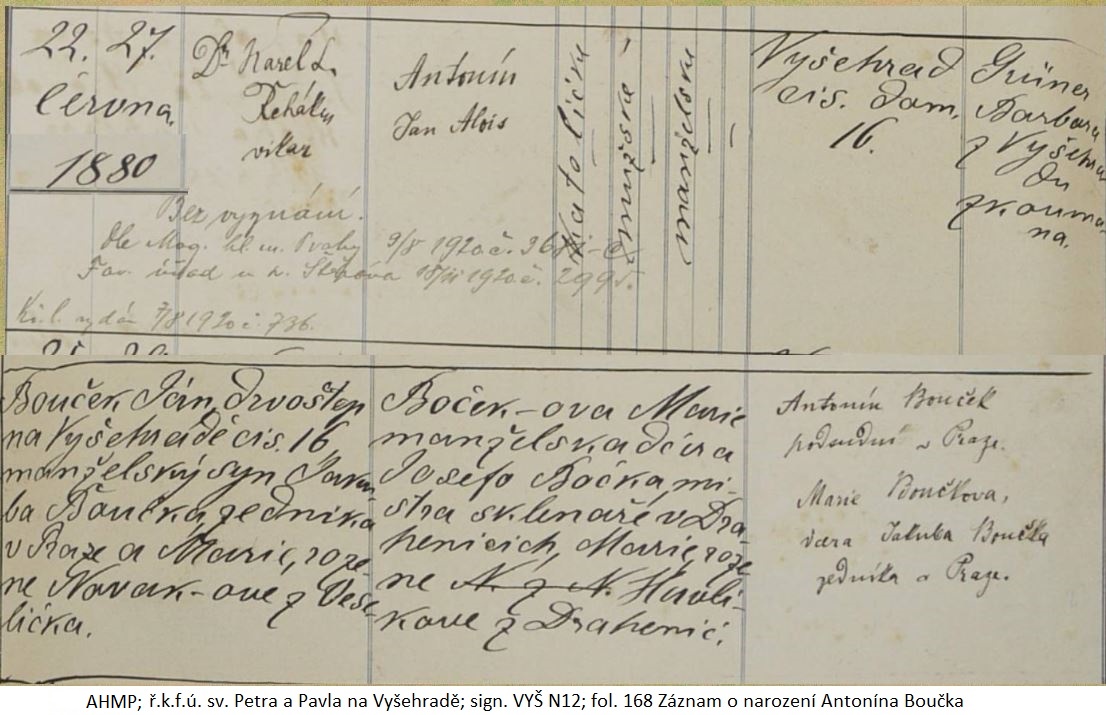 22. 27.
června.
1880
Dr Karel L.
Řehák
vikar
Antonín
Jan Alois
katolické
mužské
manželské
Vyšehrad
cis. dom.
16.
Grüner
Barbara
z Vyšehra
du
zkouma-
na.
Bez vyznání.
Dle Mag. hl. m. Prahy 9/8 1920 č.
Far. úřad u sv. Štěpána 1920 č. 2995.
Kř. l. vydán 7/8 1920 č. 736.
Bouček Ján, drvoštep
na Vyšehradě cis. 16
manželský syn Jaku-
ba Boučka, zedníka
v Praze a Marie, roze-
né Novak-ove z Vese-
líčka.
Boček-ova Marie
manželska dcera
Josefa Bočka, mi-
stra sklenáře v Dra-
henicich, Marie, roze-
né N. z N. Havli-
kove z Drahenic.
Antonín Bouček
v Praze.
Marie Boučkova,
dcera Jakuba Boučka
zedníka v Praze.
AHMP; ř.k.f.ú. sv. Petra a Pavla na Vyšehradě; sign. VYŠ N12; fol. 168 Záznam o narození Antonína Boučka